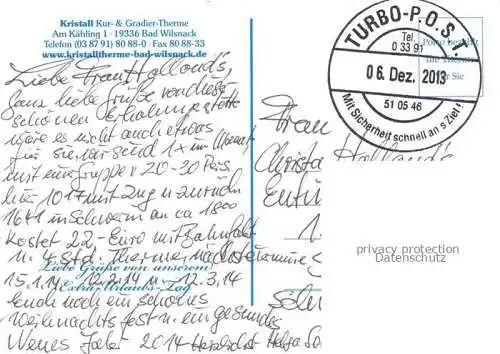 Kristall Kur- & Gradier-Therme
Am Kähling 1 · 19336 Bad Wilsnack
Telefon (03 87 91) 80 88-0 · Fax 80 88-33
www.kristalltherme-bad-wilsnack.de
Liebe Frau Holland's,
Ganz liebe Grüße von dieser
schönen Erholungsstätte
wäre es nicht auch etwas
für Sie, wir sind 1x im Monat
mit einer Gruppe v 20-30 Pers
hier 1017 mit Zug u zurück
1641 in Schwerin an ca 1800
Kostet 22,- Euro mit Bahnfahrt
u. 4 Std. Therme, nächste Termine
Liebe Grüße von unserem
15.1.14 12.2.14 u- 12.3.14
Extra-Urlaubs-Tag
Euch noch ein schönes
Weihnachtsfest u. ein gesundes
Neues Jahr 2014 Herzlichst Helga
TURBO-P.O.S.T
Tel.
0 33 91
06. Dez. 2013
51 05 46
Mit Sicherheit schnell an's Ziel!
Porto bezahlt
die Therme
für Sie
Frau
Holland's
privacy protection
Datenschutz